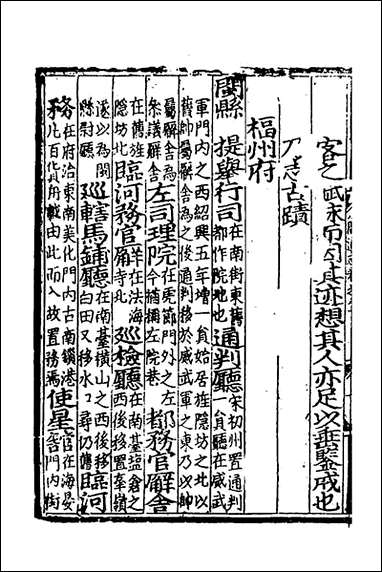 而因其迹想其人亦足以垂鑒戒也
乃志古蹟
福州府
閩縣 提舉行司在南街東舊都作院地也 通判廳宋初州置通判一員廳在威武
軍門內之西紹興五年增一員始居旌隱坊之北以舊帥屬廨舍為之後通判移於威武軍之東乃以帥
屬廨舍為參議廨舍 左司理院在虎節門外之左今猶左院巷 都務官廨舍
在舊旌隱坊北 臨河務官廨在法海寺北 巡檢廳在南臺鹽倉之西後移置嶺
遂以為閩縣尉廳 巡轄馬鋪廳在南臺橫山之西後移白田又移水口尋仍舊 臨河
務在府治東南美化門內古南鎖港凡百貨舟載由此而入故置務焉 使星在海晏門內街